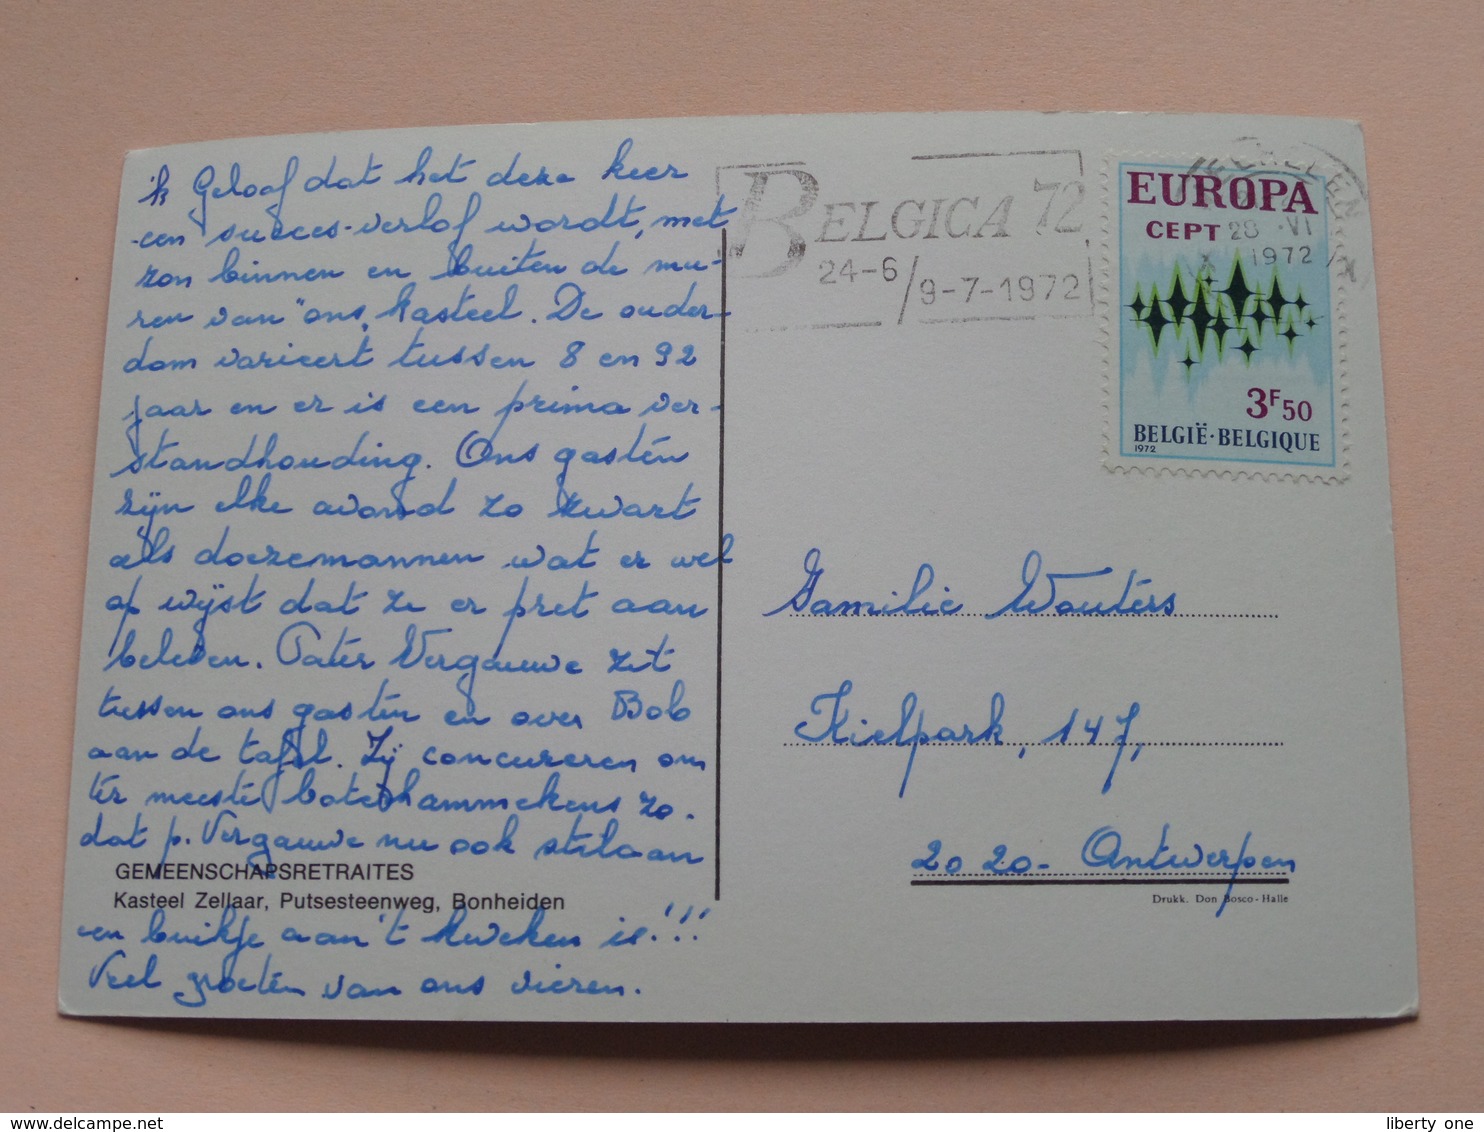 ik Geloof dat het deze keer
een succes-verlof wordt, met
zon binnen en buiten de mu-
ren van "ons" kasteel. De ouder-
dom varieert tussen 8 en 92
jaar en er is een prima ver-
standhouding. Ons gasten
zijn elke avond zo zwart
als doezemannen wat er wel
op wijst dat ze er pret aan
beleven. Pater Vergauwe zit
tussen ons gasten en over Bob
aan de tafel. Zij concureren om
ter meeste boterhammekens zo.
dat p. Vergauwe nu ook stilaan
GEMEENSCHAPSRETRAITES
Kasteel Zellaar, Putsesteenweg, Bonheiden
een buikje aan 't kweken is!!!
Veel groeten van ons vieren.
BELGICA 72
24-6/9-7-1972
MECHELEN
28 VI
1972
EUROPA
CEPT
3F50
BELGIË-BELGIQUE
1972
Familie Wouters
Kielpark, 147,
2020- Antwerpen
Drukk. Don Bosco - Halle
www.delcampe.net
liberty one